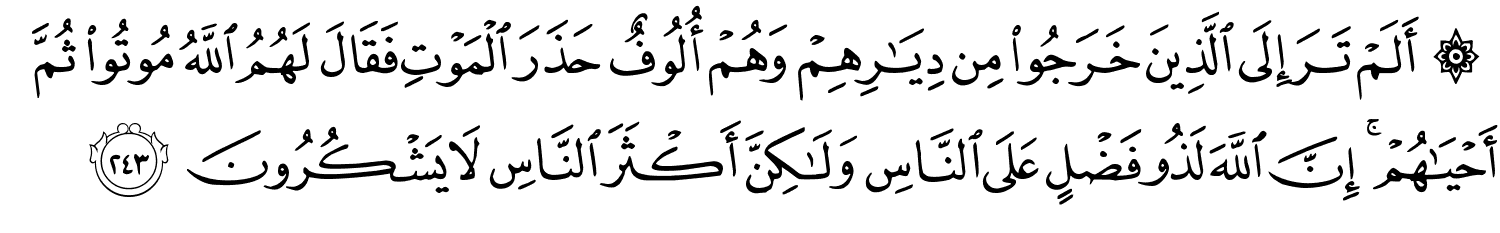 ۞ أَلَمۡ تَرَ إِلَى ٱلَّذِينَ خَرَجُواْ مِن دِيَٰرِهِمۡ وَهُمۡ أُلُوفٌ حَذَرَ ٱلۡمَوۡتِ فَقَالَ لَهُمُ ٱللَّهُ مُوتُواْ ثُمَّ
أَحۡيَٰهُمۡۚ إِنَّ ٱللَّهَ لَذُو فَضۡلٍ عَلَى ٱلنَّاسِ وَلَٰكِنَّ أَكۡثَرَ ٱلنَّاسِ لَا يَشۡكُرُونَ ٢٤٣